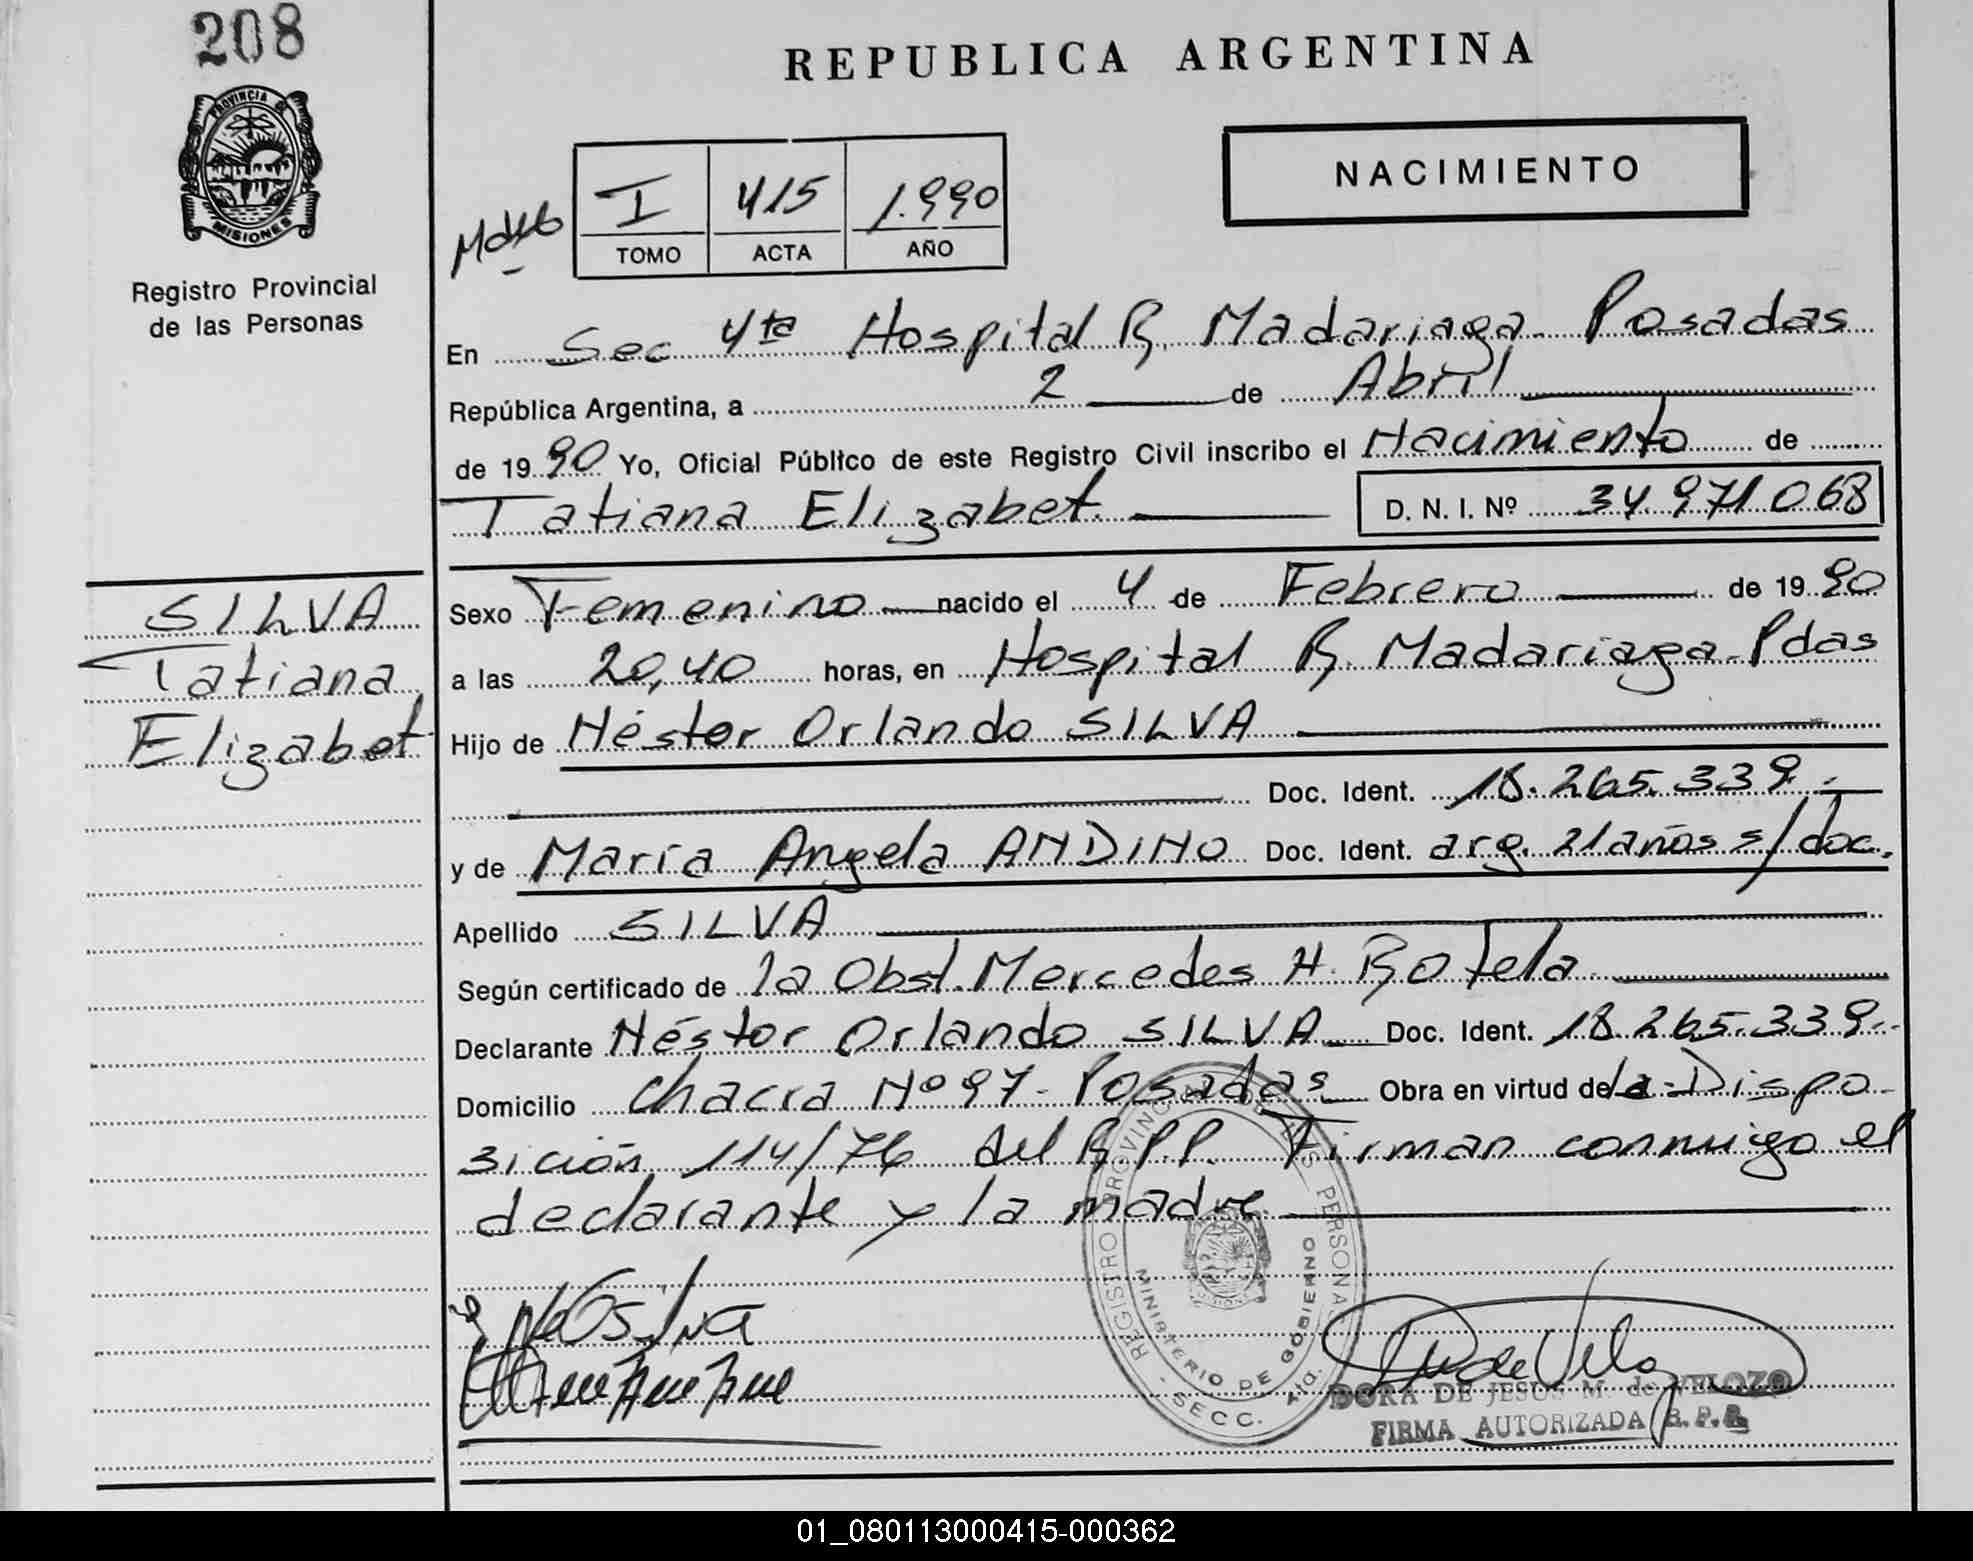 208
PROVINCIA DE
MISIONES
Registro Provincial
de las Personas
REPUBLICA ARGENTINA
NACIMIENTO
I 415 1.990
TOMO ACTA AÑO
En Sec 4ta Hospital R. Madariaga - Posadas
República Argentina, a 2 de Abril
de 19 90 Yo, Oficial Público de este Registro Civil inscribo el Nacimiento de
Tatiana Elizabet. D. N. I. Nº 34.971.068
SILVA
Tatiana
Elizabet
Sexo Femenino nacido el 4 de Febrero de 19 90
a las 20,40 horas, en Hospital R. Madariaga - Pdas
Hijo de Néstor Orlando SILVA
Doc. Ident. 18.265.339.-
y de María Angela ANDINO Doc. Ident. arg. 21 años s/doc.
Apellido SILVA
Según certificado de la Obst. Mercedes H. Rotela
Declarante Néstor Orlando SILVA Doc. Ident. 18.265.339.-
Domicilio Chacra Nº 97 - Posadas Obra en virtud de la Dispo
sición 114/76 del R.P.P. Firman conmigo el
declarante y la madre.
REGISTRO PROVINCIAL DE LAS PERSONAS
MINISTERIO DE GOBIERNO
- SECC. 4ta.
DORA DE JESUS M. de VELOZO
FIRMA AUTORIZADA R. P. P.
01_080113000415-000362